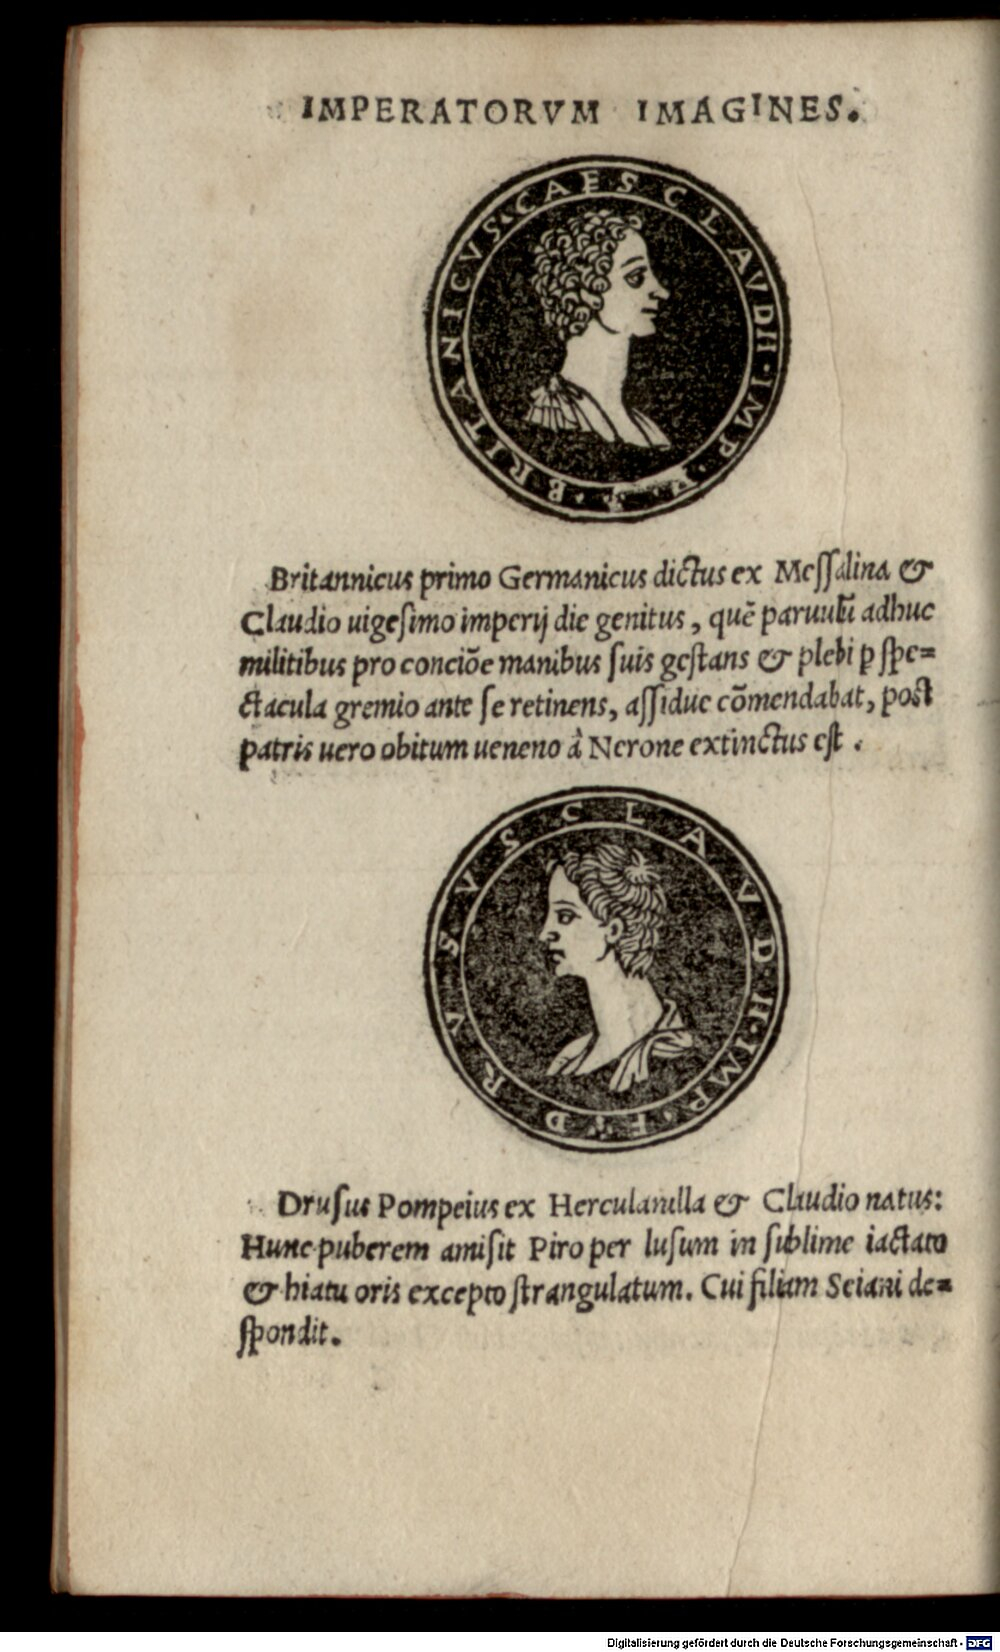 IMPERATORVM IMAGINES.
BRITANICVS·CAES CLAVDII·IMP·F
Britannicus primo Germanicus dictus ex Meſſalina &
Claudio uigeſimo imperij die genitus, quẽ paruulũ adhuc
militibus pro conciõe manibus ſuis geſtans & plebi ꝑ ſpe=
ctacula gremio ante ſe retinens, aſſidue cõmendabat, poſt
patris uero obitum ueneno â Nerone extinctus eſt.
DRVSVS CLAVDII·IMP·F
Druſus Pompeius ex Herculanilla & Claudio natus:
Hunc puberem amiſit Piro per luſum in ſublime iactato
& hiatu oris excepto ſtrangulatum. Cui filiam Seiani de=
ſpondit.
Digitalisierung gefördert durch die Deutsche Forschungsgemeinschaft - DFG